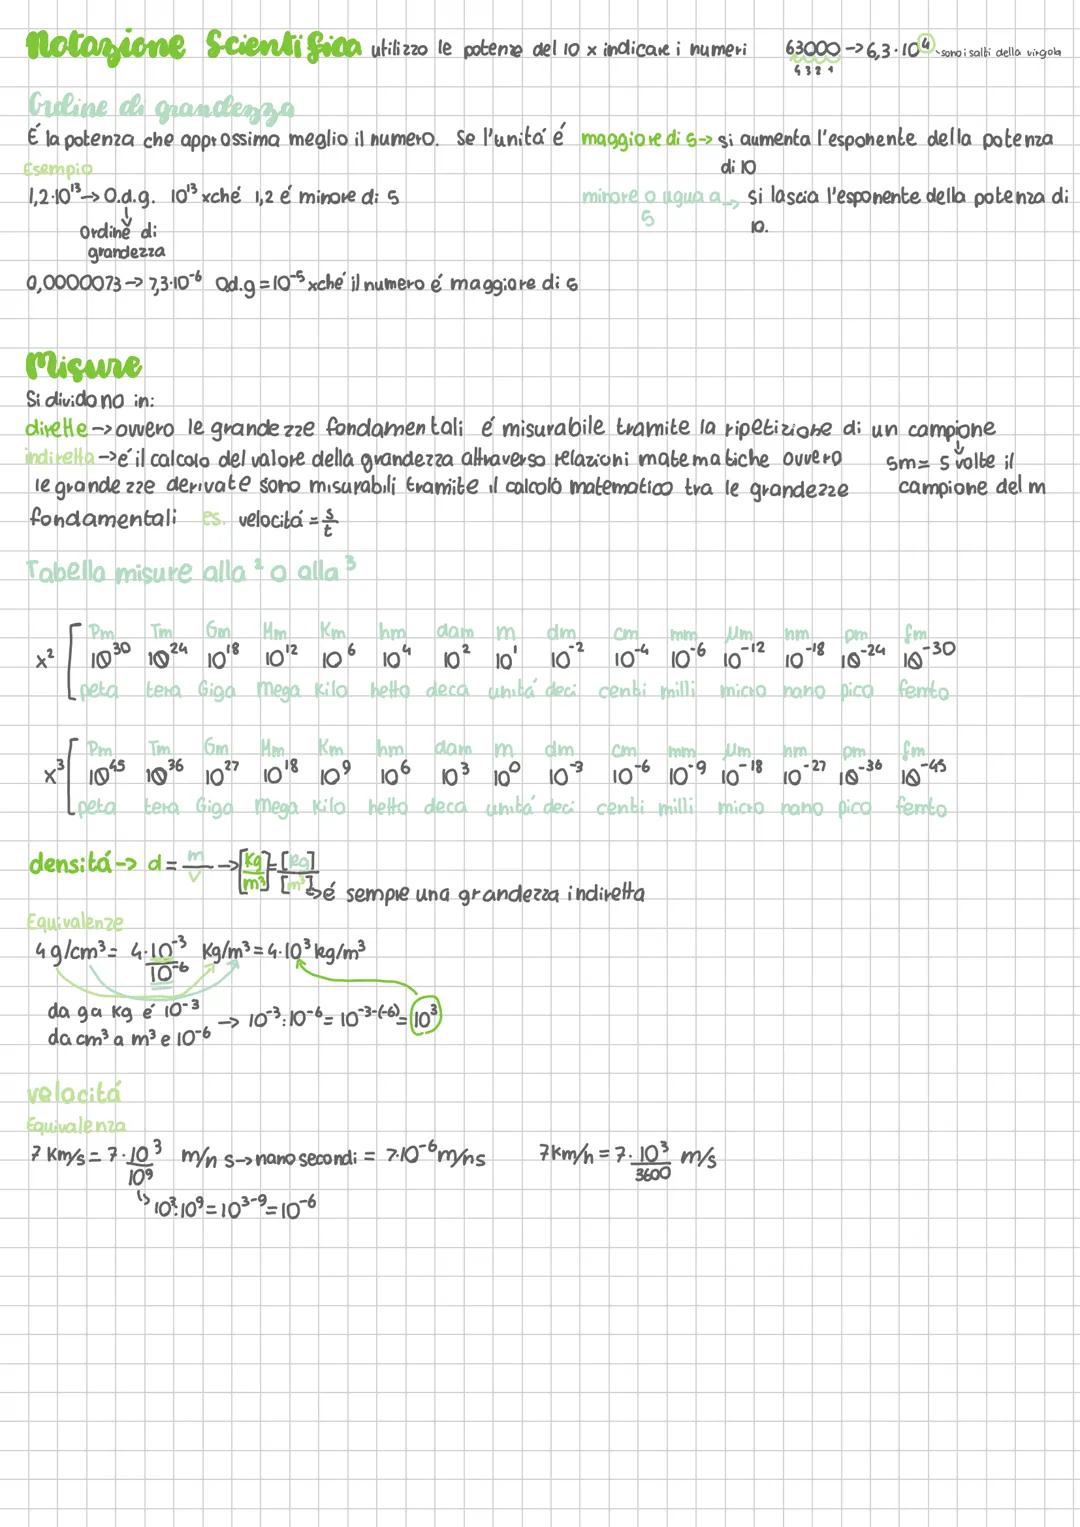 Notazione Scientifica utilizzo le potenze del 10 x indicare i numeri 63000 -> 6,3·10⁴ sono i salti della virgola
4 3 2 1
Ordine di grandezza
É la potenza che approssima meglio il numero. Se l'unitá é maggiore di 5 -> si aumenta l'esponente della potenza di 10
Esempio
1,2·10¹³ -> O.d.g. 10¹³ xché 1,2 é minore di 5
minore o ugua a 5 -> si lascia l'esponente della potenza di 10.
Ordine di grandezza
0,0000073 -> 7,3·10⁻⁶ O.d.g = 10⁻⁵ xché il numero é maggiore di 5
Misure
Si dividono in:
dirette -> ovvero le grandezze fondamentali é misurabile tramite la ripetizione di un campione
indiretta -> é il calcolo del valore della grandezza attraverso relazioni matematiche ovvero
5m = 5 volte il campione del m
le grandezze derivate sono misurabili tramite il calcolo matematico tra le grandezze
fondamentali es. velocitá = s/t
Tabella misure alla ² o alla ³
Pm Tm Gm Mm Km hm dam m dm cm mm μm nm pm fm
x² [ 10³⁰ 10²⁴ 10¹⁸ 10¹² 10⁶ 10⁴ 10² 10¹ 10⁻² 10⁻⁴ 10⁻⁶ 10⁻¹² 10⁻¹⁸ 10⁻²⁴ 10⁻³⁰
peta tera Giga Mega Kilo hetto deca unitá deci centi milli micro nano pico femto
Pm Tm Gm Mm Km hm dam m dm cm mm μm nm pm fm
x³ [ 10⁴⁵ 10³⁶ 10²⁷ 10¹⁸ 10⁹ 10⁶ 10³ 10⁰ 10⁻³ 10⁻⁶ 10⁻⁹ 10⁻¹⁸ 10⁻²⁷ 10⁻³⁶ 10⁻⁴⁵
peta tera Giga Mega Kilo hetto deca unitá deci centi milli micro nano pico femto
densitá -> d = m/V -> [Kg/m³] = [kg]/[m³]
-> é sempre una grandezza indiretta
Equivalenze
4 g/cm³ = 4·10⁻³/10⁻⁶ Kg/m³ = 4·10³ kg/m³
da g a Kg é 10⁻³
da cm³ a m³ e 10⁻⁶ -> 10⁻³:10⁻⁶ = 10⁻³⁻⁽⁻⁶⁾ = 10³
velocitá
Equivalenza
7 Km/s = 7·10³/10⁹ m/n s -> nano secondi = 7·10⁻⁶ m/ns 7km/h = 7·10³/3600 m/s
10³:10⁹ = 10³⁻⁹ = 10⁻⁶